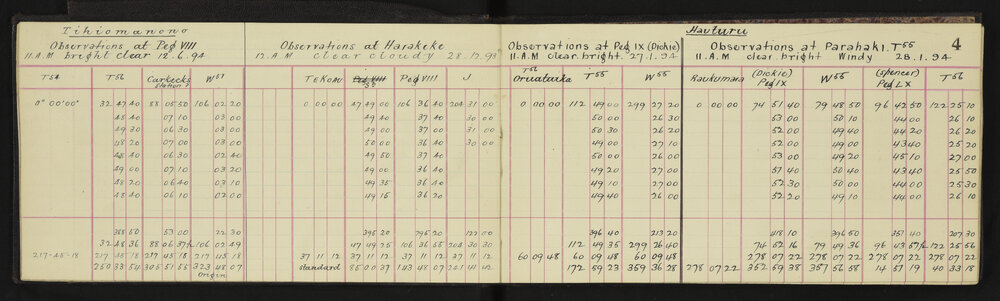 Tihiomanono
Observations at Peg VIII
11.A.M bright clear 12.6.94
Observations at Harakeke
12.A.M clear cloudy 28.12.93
Observations at Peg IX (Dickie)
11.A.M clear bright. 27.1.94
Hauturu
Observations at Parahaki. T55
11.A.M clear bright Windy 28.1.94
4
T54 T56 Carkeeks Station? W57
TEKOM Peg VIII Peg VIII J
T56 Oruatarka T55 W55
Raukumara (Dickie) Peg IX W55 (Spencer) Peg LX T56
0° 00' 00" 32 47 40 88 05 50 106 02 20 0 00 00 47 49 00 106 36 40 204 31 00 0 00 00 112 49 00 299 27 20 0 00 00 74 51 40 79 48 50 96 42 50 122 25 10
48 40 07 10 03 00 49 40 37 40 30 00 50 00 26 30 53 00 50 10 44 00 26 10
49 30 06 30 03 00 49 00 37 00 31 00 50 30 26 20 52 00 49 40 44 20 26 20
48 20 07 00 03 00 50 00 36 40 30 00 49 00 27 10 52 00 49 00 43 40 25 20
48 40 06 30 02 40 49 50 37 40 50 00 26 00 53 00 49 20 45 10 27 00
49 00 07 10 03 20 49 00 36 40 49 20 27 00 51 40 50 40 43 40 25 50
48 20 06 40 03 10 49 35 36 40 49 10 27 00 52 30 50 00 44 00 25 30
48 40 06 10 02 00 49 15 36 20 49 40 26 00 52 20 49 10 44 00 26 10
388 50 53 00 22 30 395 20 295 20 122 00 396 40 213 20 418 10 396 50 351 40 207 30
32 48 36 88 06 37½ 106 02 49 47 49 25 106 36 55 204 30 30 112 49 35 299 26 40 74 52 16 79 49 36 96 43 57½ 122 25 56
217-45-18 217 45 18 217 45 18 217 45 18 37 11 12 37 11 12 37 11 12 37 11 12 60 09 48 60 09 48 60 09 48 278 07 22 278 07 22 278 07 22 278 07 22
250 33 54 305 51 55 323 48 07 Origin standard 85 00 37 143 48 07 241 41 42 172 59 23 359 36 28 278 07 22 352 59 38 357 56 58 14 51 19 40 33 18